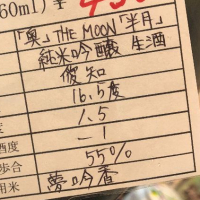 60ml) ¥
「奥」THE MOON「半月」
純米吟醸 生酒
愛知
16.5度
1.5
酒度 -1
歩合 55%
用米 夢吟香